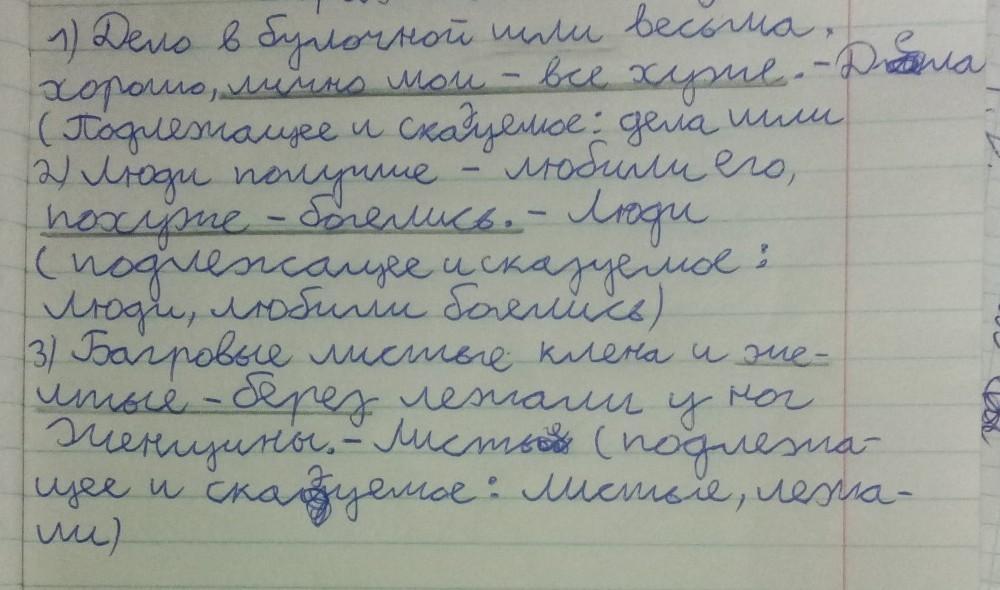 1) Дело в булочной шли весьма
хорошо, лично мои - все хуже. - Дела
(Подлежащее и сказуемое: дела шли
2) Люди получше - любили его,
похуже - боялись. - Люди
(подлежащее и сказуемое:
люди, любили боялись)
3) Багровые листые клена и же-
лтые - берез лежали у ног
Женщины. - Листые (подлежа-
щее и сказуемое: листые, лежа-
ли)